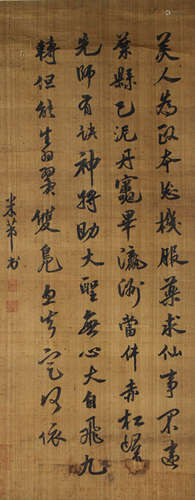 美人為政本忘機服藥求仙事不違
葉縣已泥丹竈畢瀛洲當伴赤松歸
先師有訣神將助大聖無心火自飛九
轉但能生羽翼雙鳧忽去定何依
米芾書